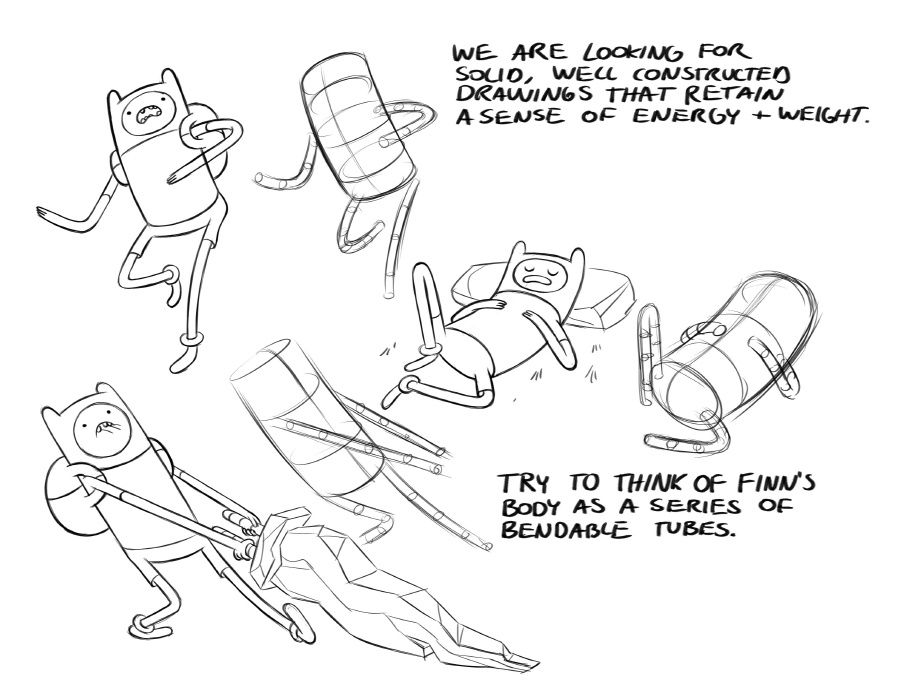 WE ARE LOOKING FOR
SOLID, WELL CONSTRUCTED
DRAWINGS THAT RETAIN
A SENSE OF ENERGY + WEIGHT.
TRY TO THINK OF FINN'S
BODY AS A SERIES OF
BENDABLE TUBES.